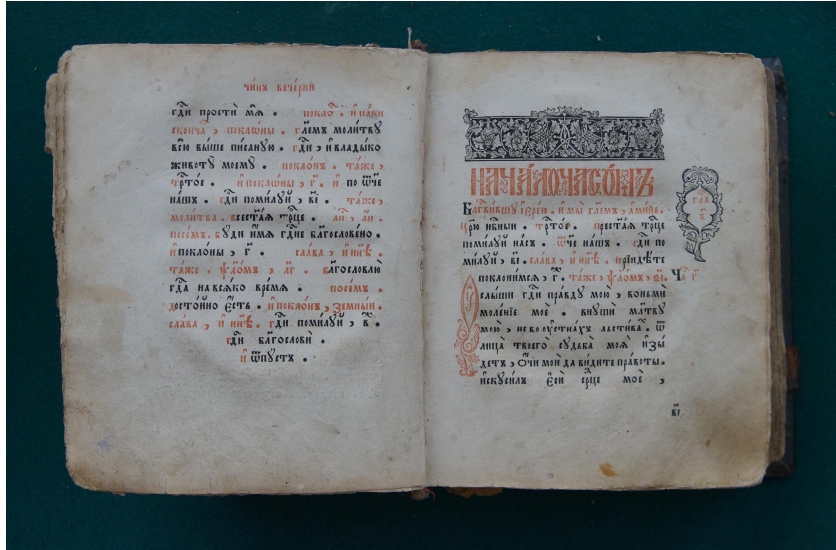 чи́нъ вече́рнїй
гдⷭ҇и прости́ мѧ̀ . покло́ⷩ . и҆ па́ки
сконча́ѧ , покло́ны . гл҃емъ моли́тву
всю̀ вы́ше пи́саную . гдⷭ҇и , и҆ влады́ко
животу̀ моему̀ . покло́нъ . та́же ,
трⷭ҇то́е . и҆ покло́ны , г҃ . и҆ по ѻ҆́ч҃е
на́шъ . гдⷭ҇и поми́луй , в҃і . та́же ,
моли́тва . всест҃а́ѧ трⷪ҇це .
посе́мъ . бу́ди и҆́мѧ гдⷭ҇не бл҃гослове́но .
и҆ покло́ны , г҃ . сла́ва , и҆ ны́нѣ .
та́же . ѱало́мъ , л҃г . бл҃гословлю̀
гдⷭ҇а на всѧ́ко вре́мѧ . посе́мъ .
досто́йно є҆́сть . и҆ покло́нъ , земны́й .
сла́ва , и҆ ны́нѣ . гдⷭ҇и поми́луй , в҃ .
гдⷭ҇и бл҃гословѝ .
и҆ ѿпу́стъ .
НАЧА́ЛО ЧАСО́МЪ
Бл҃гви́вшу і҆ере́ю . и҆ мы̀ гл҃емъ , а҆ми́нь .
цр҃ю̀ нбⷭ҇ный . трⷭ҇то́е . прест҃а́ѧ трⷪ҇це
поми́луй на́съ . ѻ҆́ч҃е на́шъ . гдⷭ҇и по
ми́луй , в҃і . сла́ва , и҆ ны́нѣ . прїиді́те
поклони́мсѧ , г҃ . та́же , ѱало́мъ , ѕ҃і . Ча́ г҃
Услы́ши гдⷭ҇и пра́вду мою̀ , вонмѝ
моле́нїе моѐ . внушѝ мл҃тву
мою̀ , не во ѹ҆стна́хъ льсти́вахъ . ѿ
лица̀ твоегѡ̀ судьба̀ моѧ̀ и҆зы́
детъ , ѻ҆́чи мои̑ да ви́дите правоты̀ .
и҆скуси́лъ є҆сѝ се́рце моѐ ,
гла
в҃
в҃і